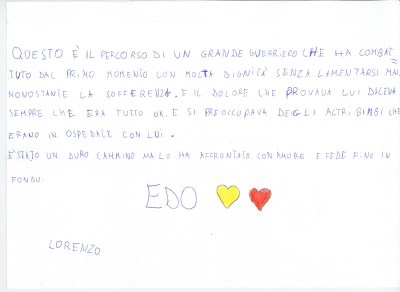 QUESTO È IL PERCORSO DI UN GRANDE GUERRIERO CHE HA COMBAT=
TUTO DAL PRIMO MOMENTO CON MOLTA DIGNITÀ SENZA LAMENTARSI MAI
NONOSTANTE LA SOFFERENZA. E IL DOLORE CHE PROVAVA LUI DICEVA
SEMPRE CHE ERA TUTTO OK. E SI PREOCCUPAVA DEGLI ALTRI BIMBI CHE
ERANO IN OSPEDALE CON LUI.
E'STATO UN DURO CAMMINO MA LO HA AFFRONTATO CON AMORE E FEDE FINO IN
FONDO.
EDO
LORENZO